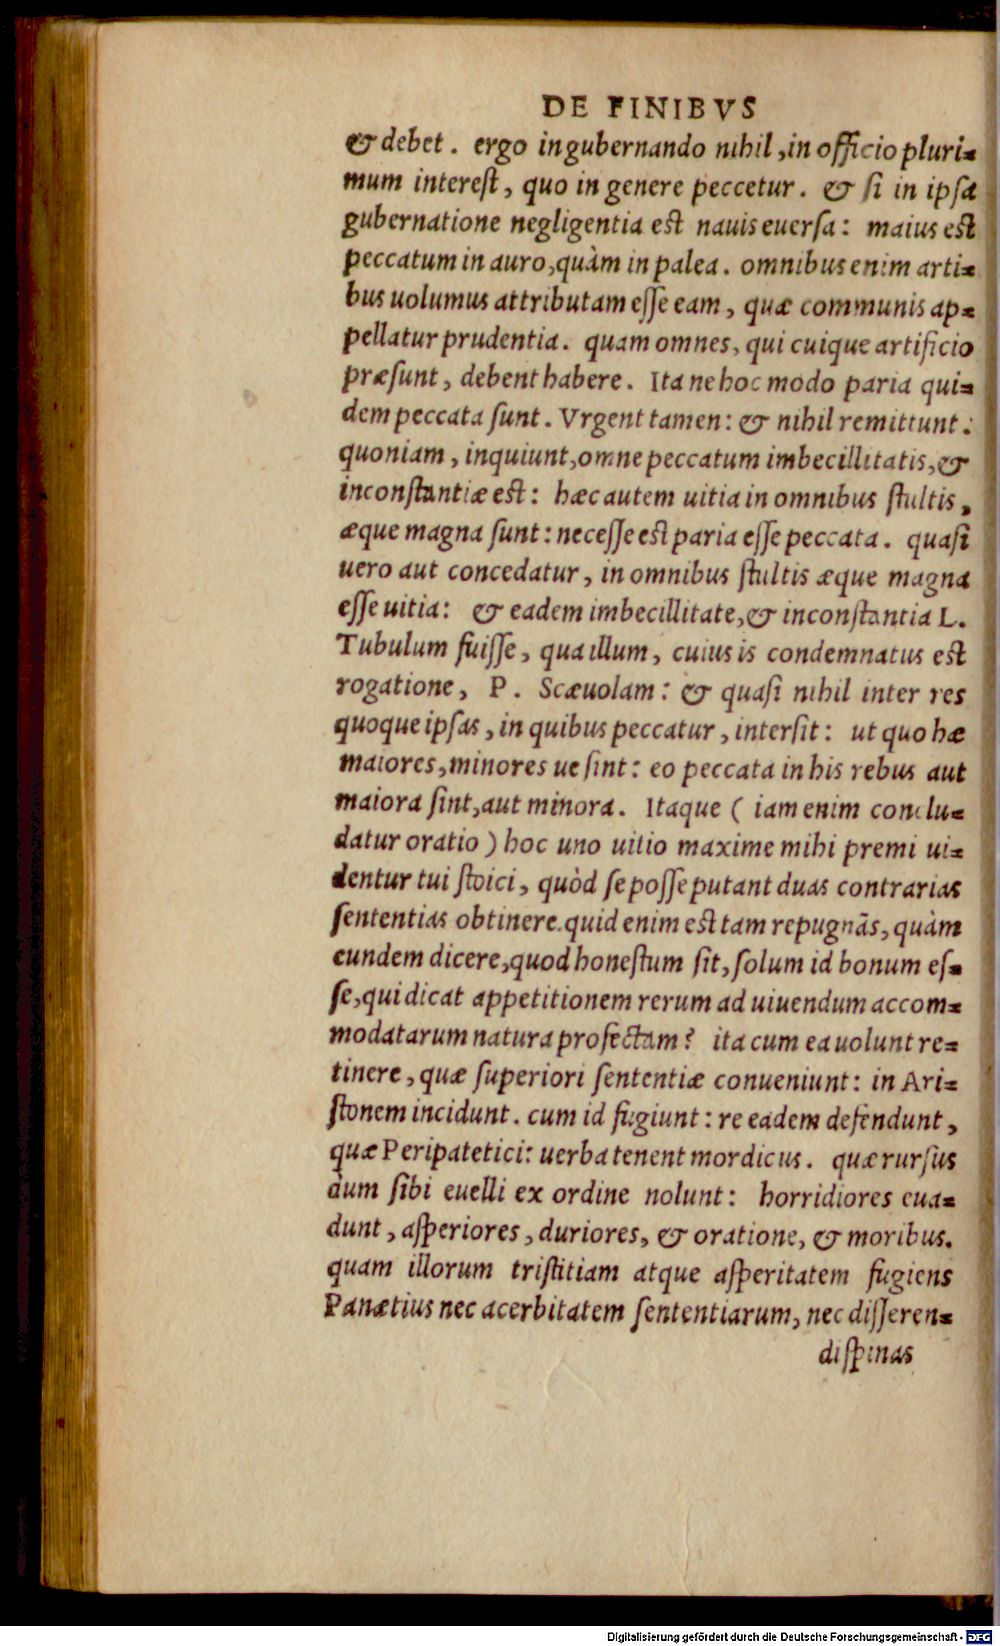 DE FINIBVS
& debet. ergo in gubernando nihil, in officio pluri=
mum interest, quo in genere peccetur. & si in ipsa
gubernatione negligentia est nauis euersa: maius est
peccatum in auro, quàm in palea. omnibus enim arti=
bus uolumus attributam esse eam, quæ communis ap=
pellatur prudentia. quam omnes, qui cuique artificio
præsunt, debent habere. Ita ne hoc modo paria qui=
dem peccata sunt. Vrgent tamen: & nihil remittunt:
quoniam, inquiunt, omne peccatum imbecillitatis, &
inconstantiæ est: hæc autem uitia in omnibus stultis,
æque magna sunt: necesse est paria esse peccata. quasi
uero aut concedatur, in omnibus stultis æque magna
esse uitia: & eadem imbecillitate, & inconstantia L.
Tubulum fuisse, qua illum, cuius is condemnatus est
rogatione, P. Scæuolam: & quasi nihil inter res
quoque ipsas, in quibus peccatur, intersit: ut quo hæ
maiores, minores ue sint: eo peccata in his rebus aut
maiora sint, aut minora. Itaque ( iam enim conclu=
datur oratio ) hoc uno uitio maxime mihi premi ui=
dentur tui stoici, quòd se posse putant duas contrarias
sententias obtinere. quid enim est tam repugnãs, quàm
eundem dicere, quod honestum sit, solum id bonum es=
se, qui dicat appetitionem rerum ad uiuendum accom=
modatarum natura profectam? ita cum ea uolunt re=
tinere, quæ superiori sententiæ conueniunt: in Ari=
stonem incidunt. cum id fugiunt: re eadem defendunt,
quæ Peripatetici: uerba tenent mordicus. quæ rursus
dum sibi euelli ex ordine nolunt: horridiores eua=
dunt, asperiores, duriores, & oratione, & moribus.
quam illorum tristitiam atque asperitatem fugiens
Panætius nec acerbitatem sententiarum, nec disseren=
di spinas
Digitalisierung gefördert durch die Deutsche Forschungsgemeinschaft - DFG